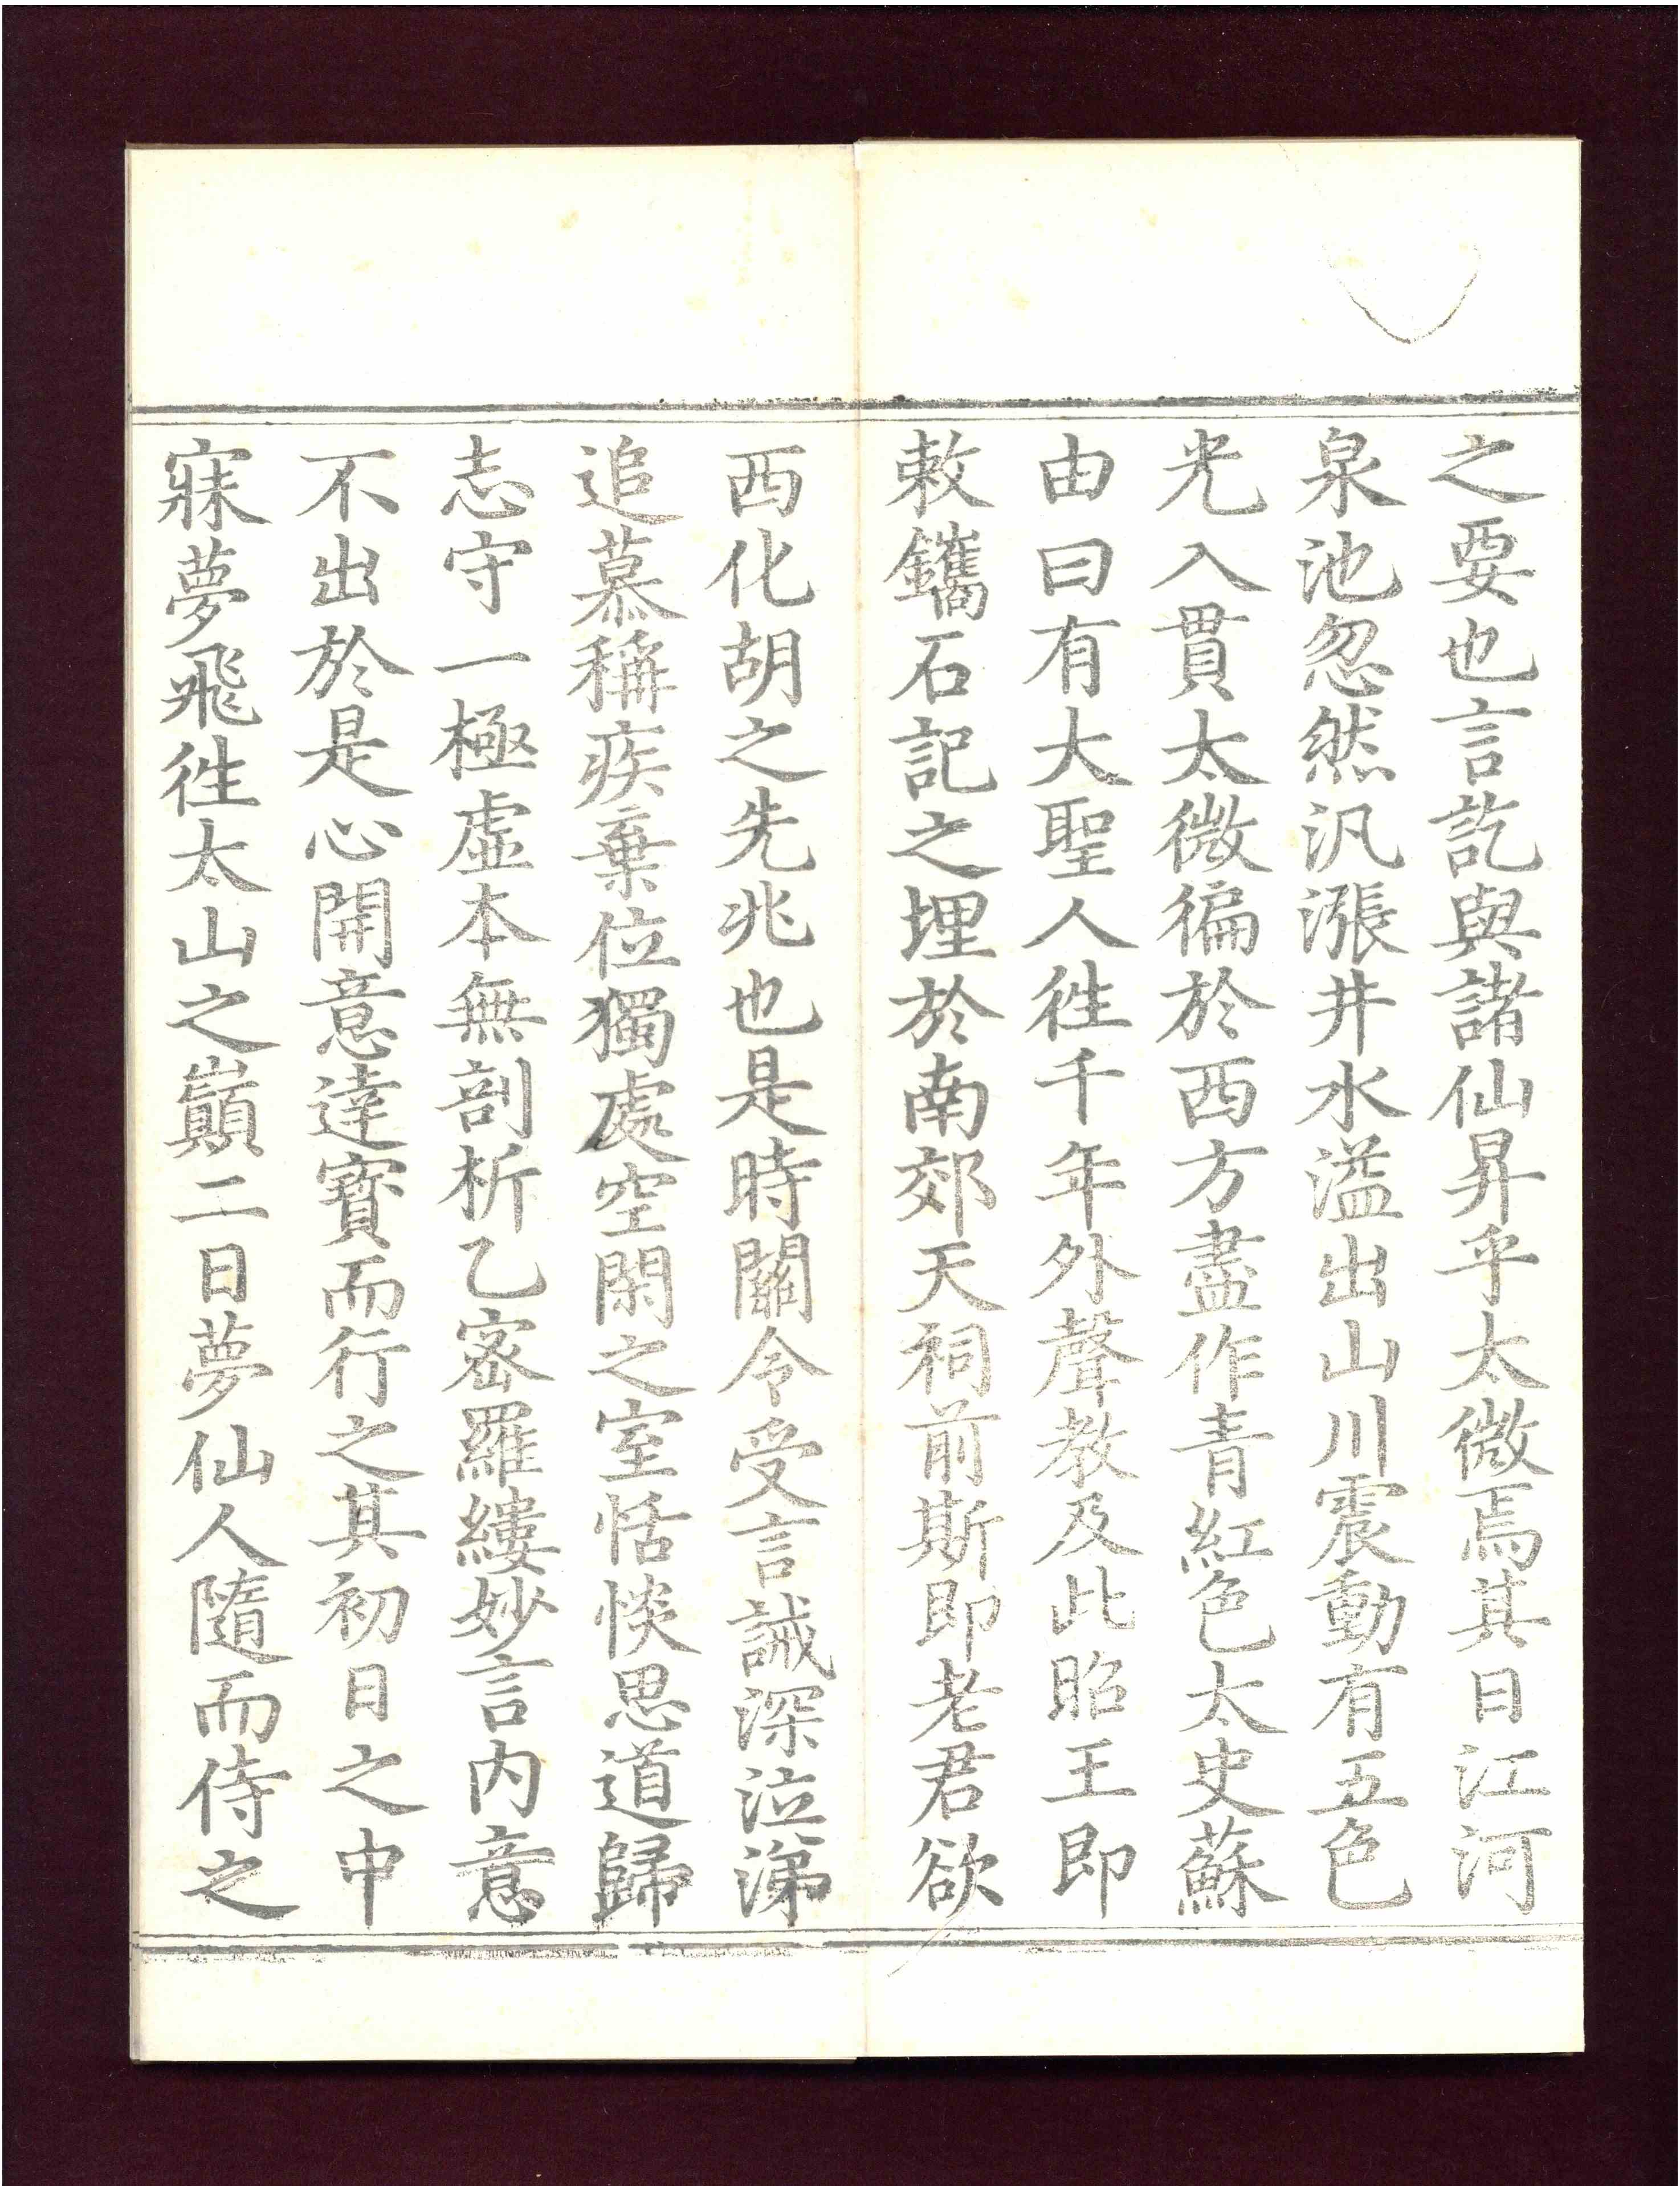 之要也言訖與諸仙昇乎太微焉其日江河
泉池忽然汎漲井水溢出山川震動有五色
光入貫太微徧於西方盡作青紅色太史蘇
由曰有大聖人徃千年外聲教及此昭王即
敕鑴石記之埋於南郊天祠前斯即老君欲
西化胡之先兆也是時關令受言誡深泣涕
追慕稱疾棄位獨處空閑之室恬惔思道歸
志守一極虛本無剖析乙密羅縷妙言内意
不出於是心開意達寳而行之其初日之中
寐夢飛徃太山之巔二日夢仙人隨而侍之